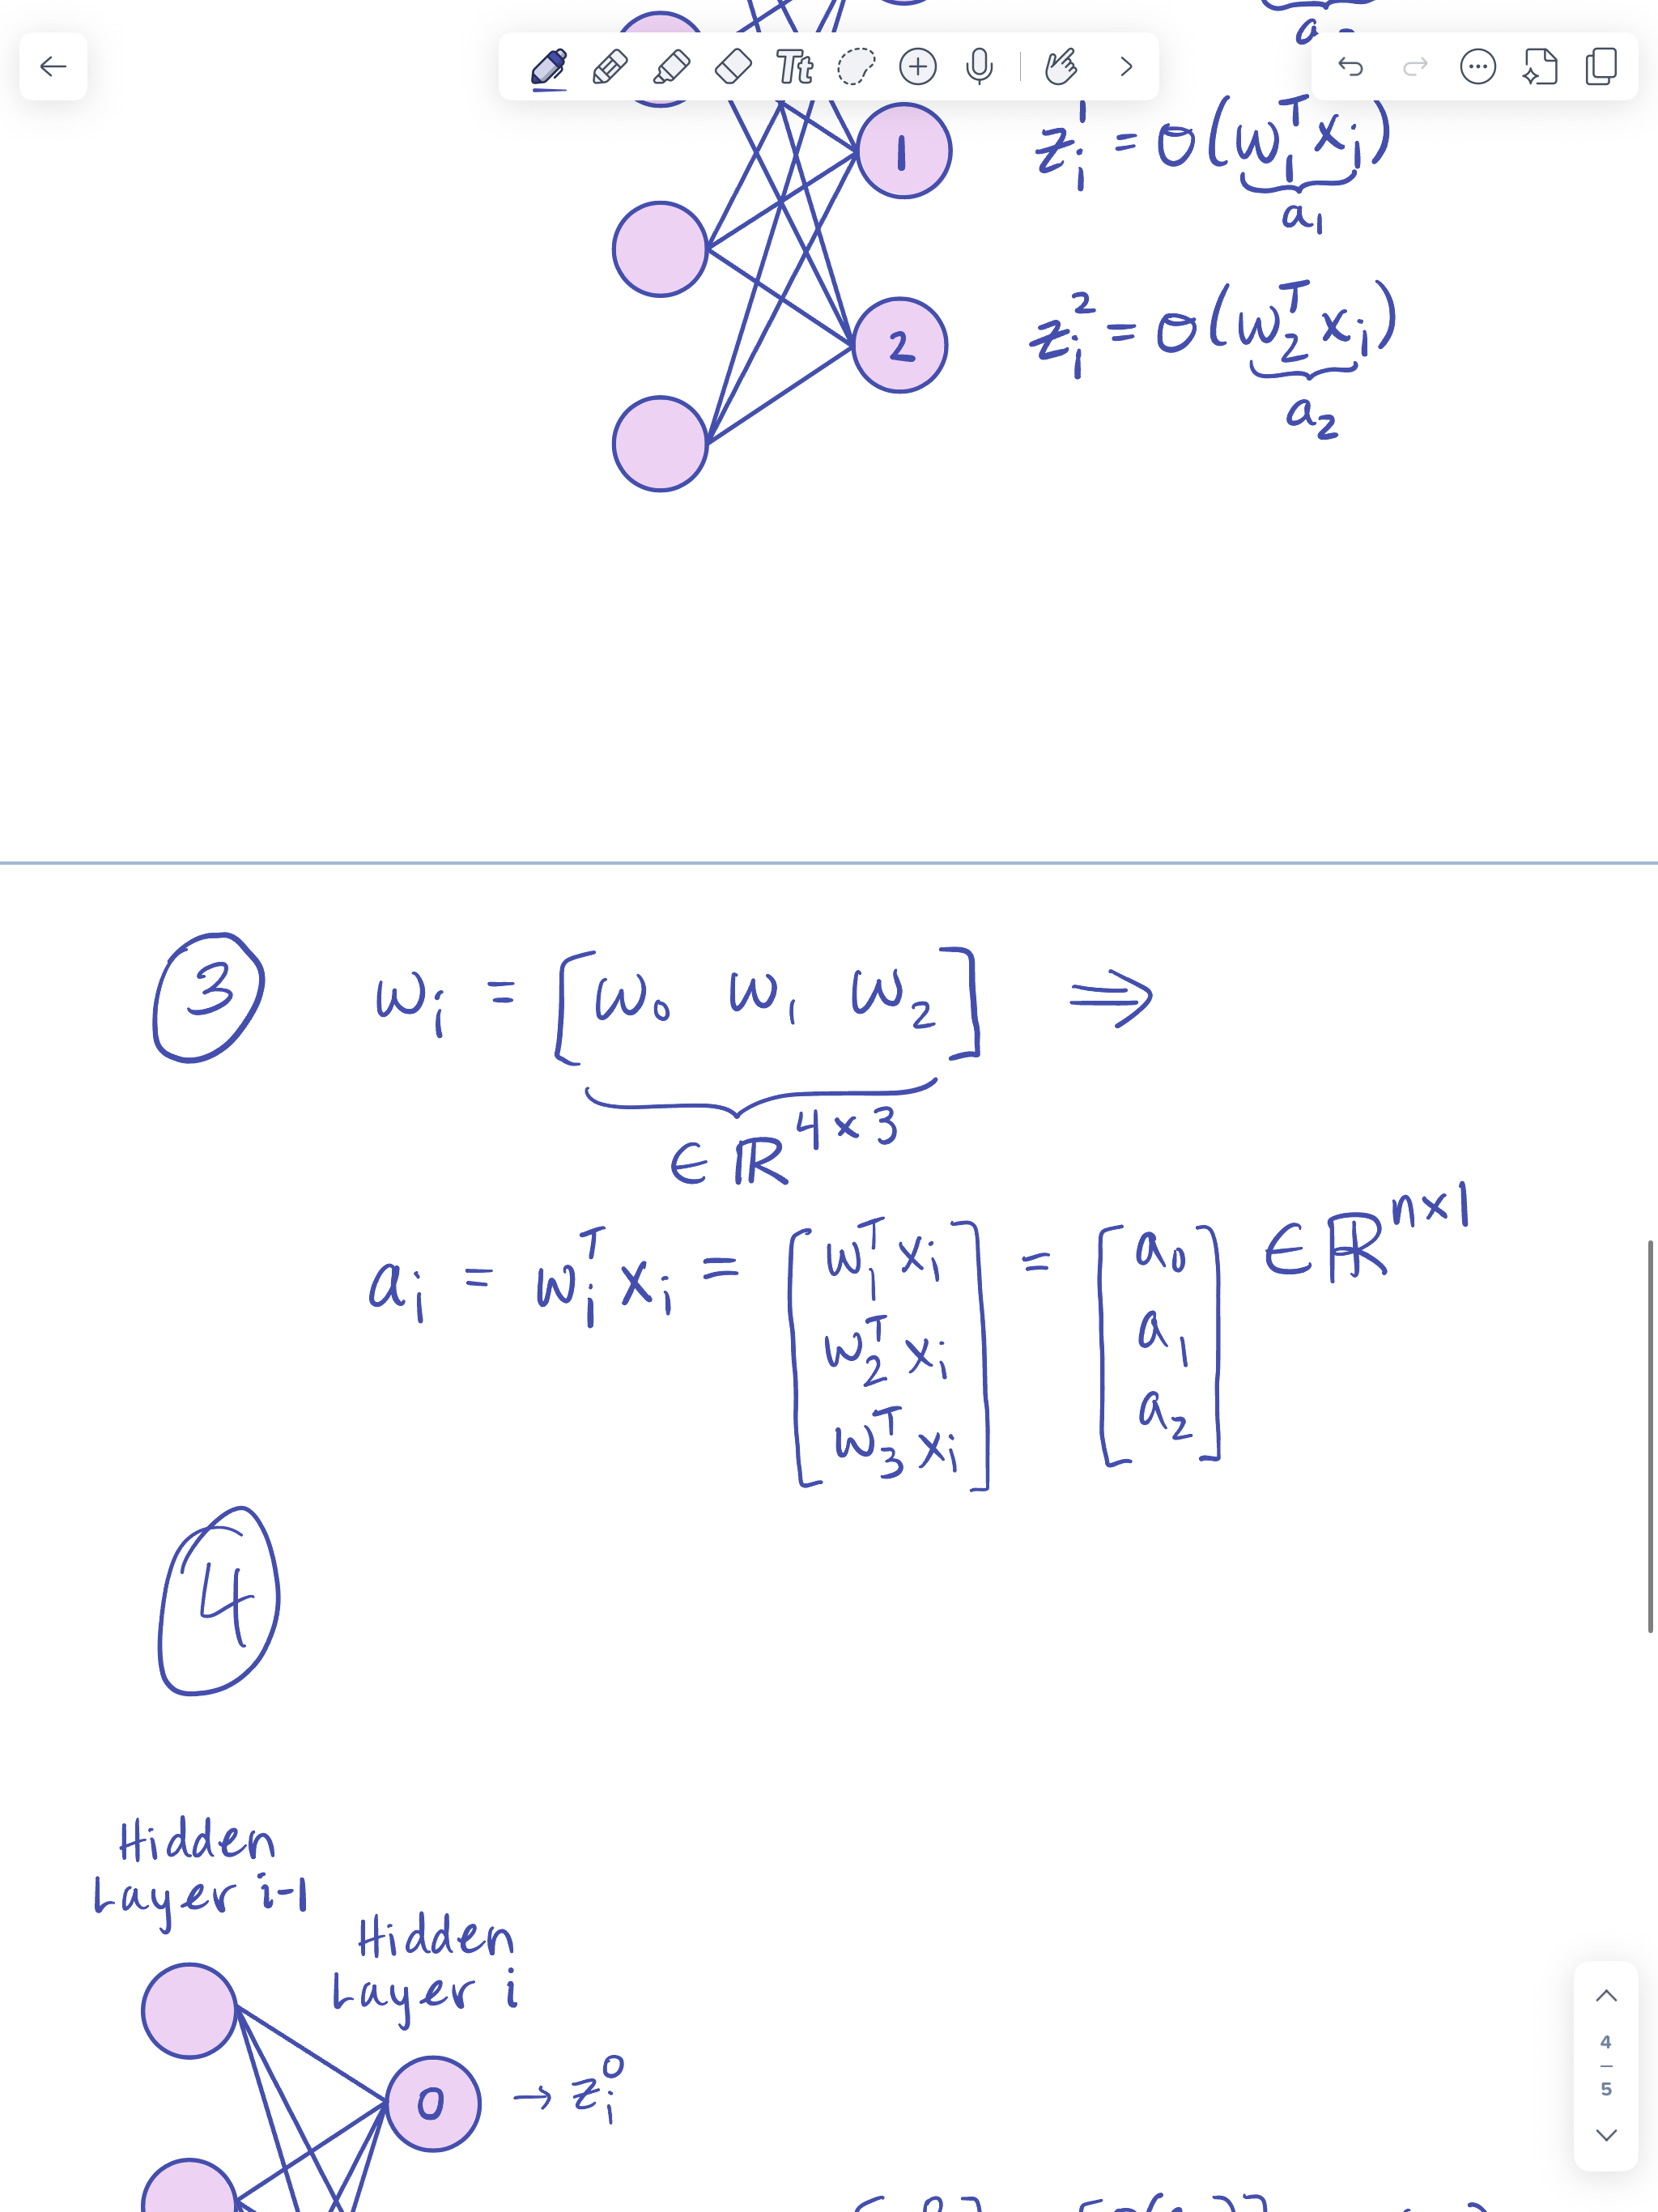 Tt
1
z_i^1 = σ(w_1^T x_i)
a_1
2
z_i^2 = σ(w_2^T x_i)
a_2
3 w_i = [w_0 w_1 w_2] ⇒
∈ ℝ^{4×3}
a_i = w_i^T x_i = [w_1^T x_i = [a_0 ∈ ℝ^{n×1}
w_2^T x_i a_1
w_3^T x_i] a_2]
4
Hidden
Layer i-1
Hidden
Layer i
0 → z_i^0
4
5